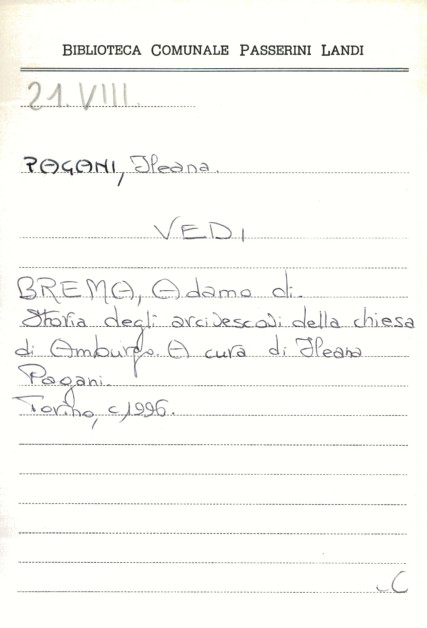 BIBLIOTECA COMUNALE PASSERINI LANDI
21.VIII.
PAGANI, Ileana.
VEDI
BREMA, Adamo di.
Storia degli arcivescovi della chiesa
di Amburgo. A cura di Ileana
Pagani.
Torino, c1996.